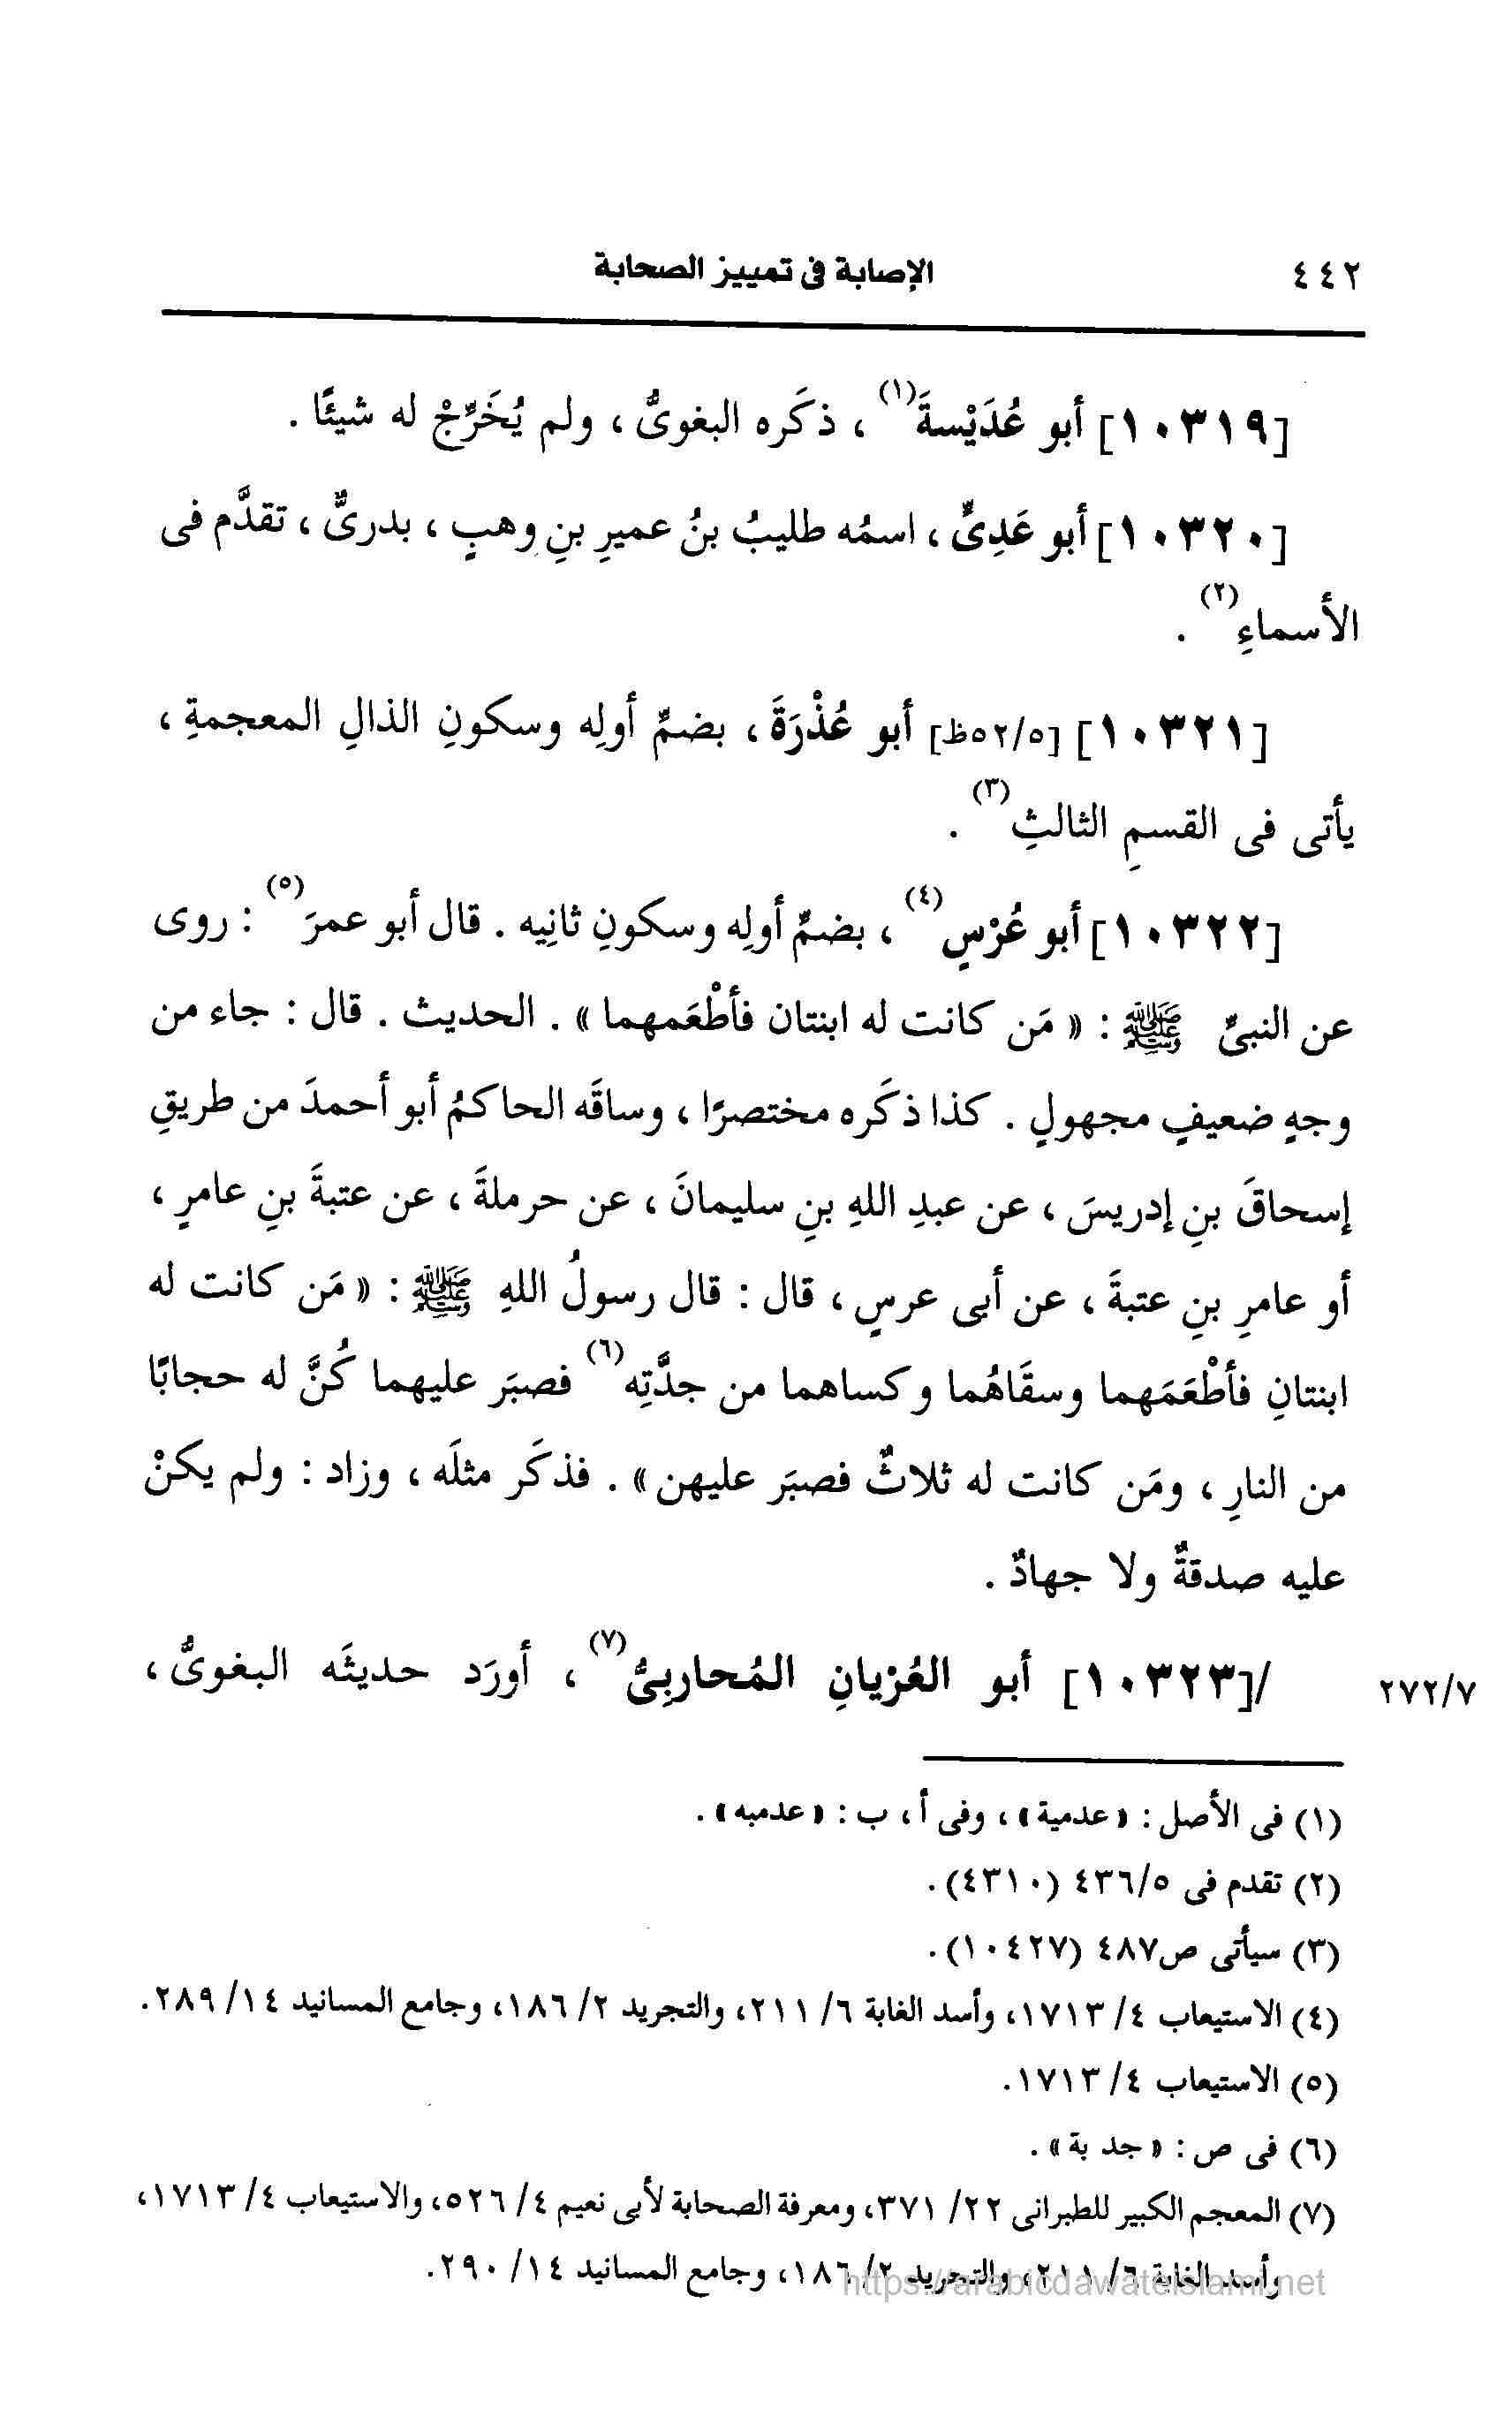 ٤٤٢ الإصابة فى تمييز الصحابة
[١٠٣١٩] أبو عُدَيْسةَ(١) ، ذكَره البغوىُّ ، ولم يُخَرِّجْ له شيئًا .
[١٠٣٢٠] أبو عَدِىٍّ ، اسمُه طليبُ بنُ عميرِ بنِ وهبٍ ، بدرىٌّ ، تقدَّم فى
الأسماءِ(٢) .
[١٠٣٢١] [٥/٥٢ظ] أبو عُذْرَةَ ، بضمِّ أولِه وسكونِ الذالِ المعجمةِ ،
يأتى فى القسمِ الثالثِ(٣) .
[١٠٣٢٢] أبو عُرْسٍ(٤) ، بضمِّ أولِه وسكونِ ثانِيه . قال أبو عمرَ(٥) : روى
عن النبىِّ ﷺ : « مَن كانت له ابنتان فأطْعَمهما » . الحديث . قال : جاء من
وجهٍ ضعيفٍ مجهولٍ . كذا ذكَره مختصرًا ، وساقَه الحاكمُ أبو أحمدَ من طريقِ
إسحاقَ بنِ إدريسَ ، عن عبدِ اللهِ بنِ سليمانَ ، عن حرملةَ ، عن عتبةَ بنِ عامرٍ ،
أو عامرِ بنِ عتبةَ ، عن أبى عرسٍ ، قال : قال رسولُ اللهِ ﷺ : « مَن كانت له
ابنتانِ فأطْعَمَهما وسقَاهُما وكساهما من جدَّتِه(٦) فصبَر عليهما كُنَّ له حجابًا
من النارِ ، ومَن كانت له ثلاثٌ فصبَر عليهن » . فذكَر مثلَه ، وزاد : ولم يكنْ
عليه صدقةٌ ولا جهادٌ .
٢٧٢/٧ /[١٠٣٢٣] أبو العُرْيانِ المُحاربِىُّ(٧) ، أورَد حديثَه البغوىُّ ،
(١) فى الأصل : « عدمية » ، وفى أ ، ب : « عدمبه » .
(٢) تقدم فى ٤٣٦/٥ (٤٣١٠) .
(٣) سيأتى ص٤٨٧ (١٠٤٢٧) .
(٤) الاستيعاب ٤/ ١٧١٣، وأسد الغابة ٦/ ٢١١، والتجريد ٢/ ١٨٦، وجامع المسانيد ١٤/ ٢٨٩.
(٥) الاستيعاب ٤/ ١٧١٣.
(٦) فى ص : « جد بة » .
(٧) المعجم الكبير للطبرانى ٢٢/ ٣٧١، ومعرفة الصحابة لأبى نعيم ٤/ ٥٢٦، والاستيعاب ٤/ ١٧١٣،
وأسد الغابة ٦/ ٢١١، والتجريد ٢/ ١٨٦، وجامع المسانيد ١٤/ ٢٩٠.
https://arabicdawateislami.net